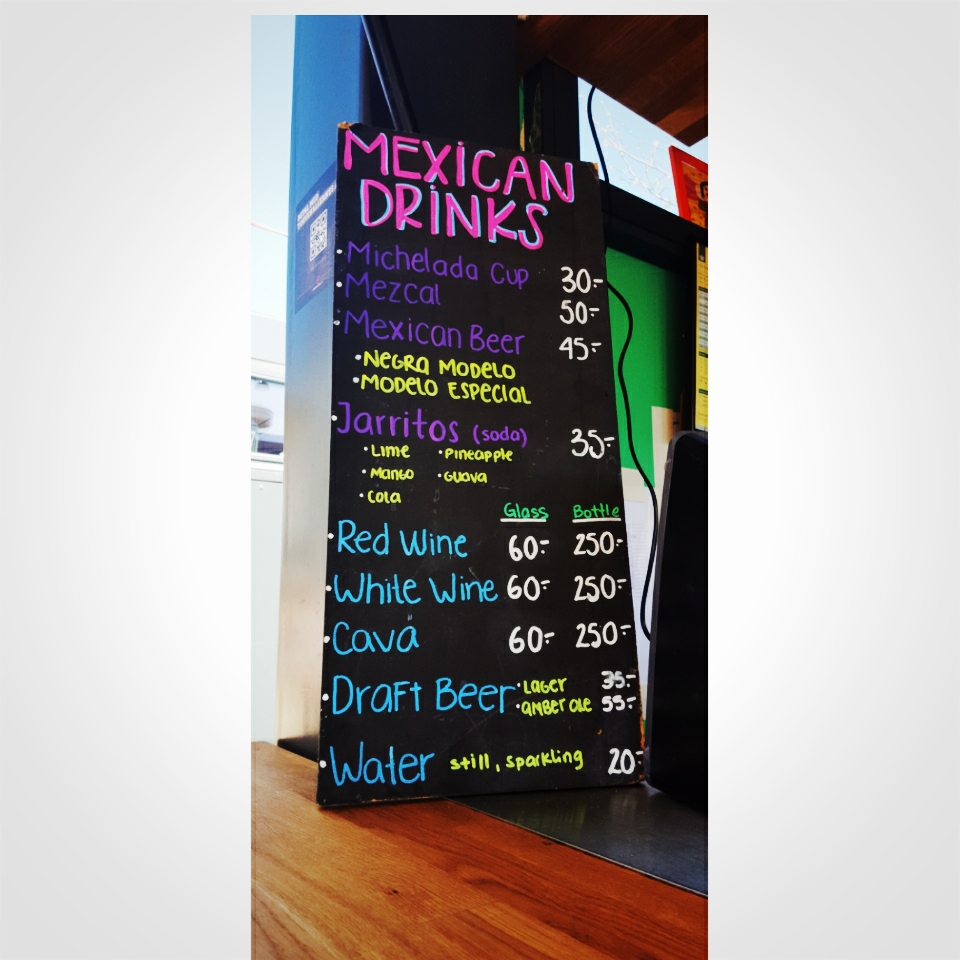 MEXICAN
DRINKS
• Michelada Cup 30:-
• Mezcal 50:-
• Mexican Beer 45:-
• NEGRA MODELO
• MODELO ESPECIAL
• Jarritos (soda) 35:-
• Lime • Pineapple
• Mango • Guava
• Cola
Glass Bottle
• Red Wine 60:- 250:-
• White Wine 60:- 250:-
• Cava 60:- 250:-
• Draft Beer • LAGER 35:-
• AMBER ALE 55:-
• Water still, sparkling 20:-